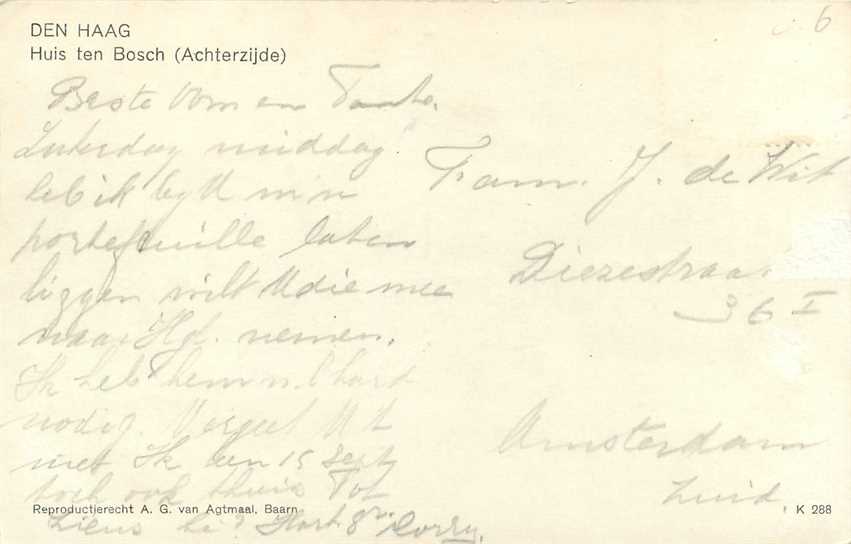 DEN HAAG
Huis ten Bosch (Achterzijde)
6
Beste Oom en Tante.
Zaterdag middag
heb ik by U m'n
portefeuille laten
liggen wilt U die mee
naar Hgl. nemen.
Ik heb hem n.l. hard
nodig. Vergeet U t
niet Ik ben 15 Sept
toch ook thuis Tot
ziens hè? Hart. gr. Corry.
Fam. J. de Wit
Diezestraat
36 I
Amsterdam
Zuid
Reproductierecht A. G. van Agtmaal, Baarn
K 288